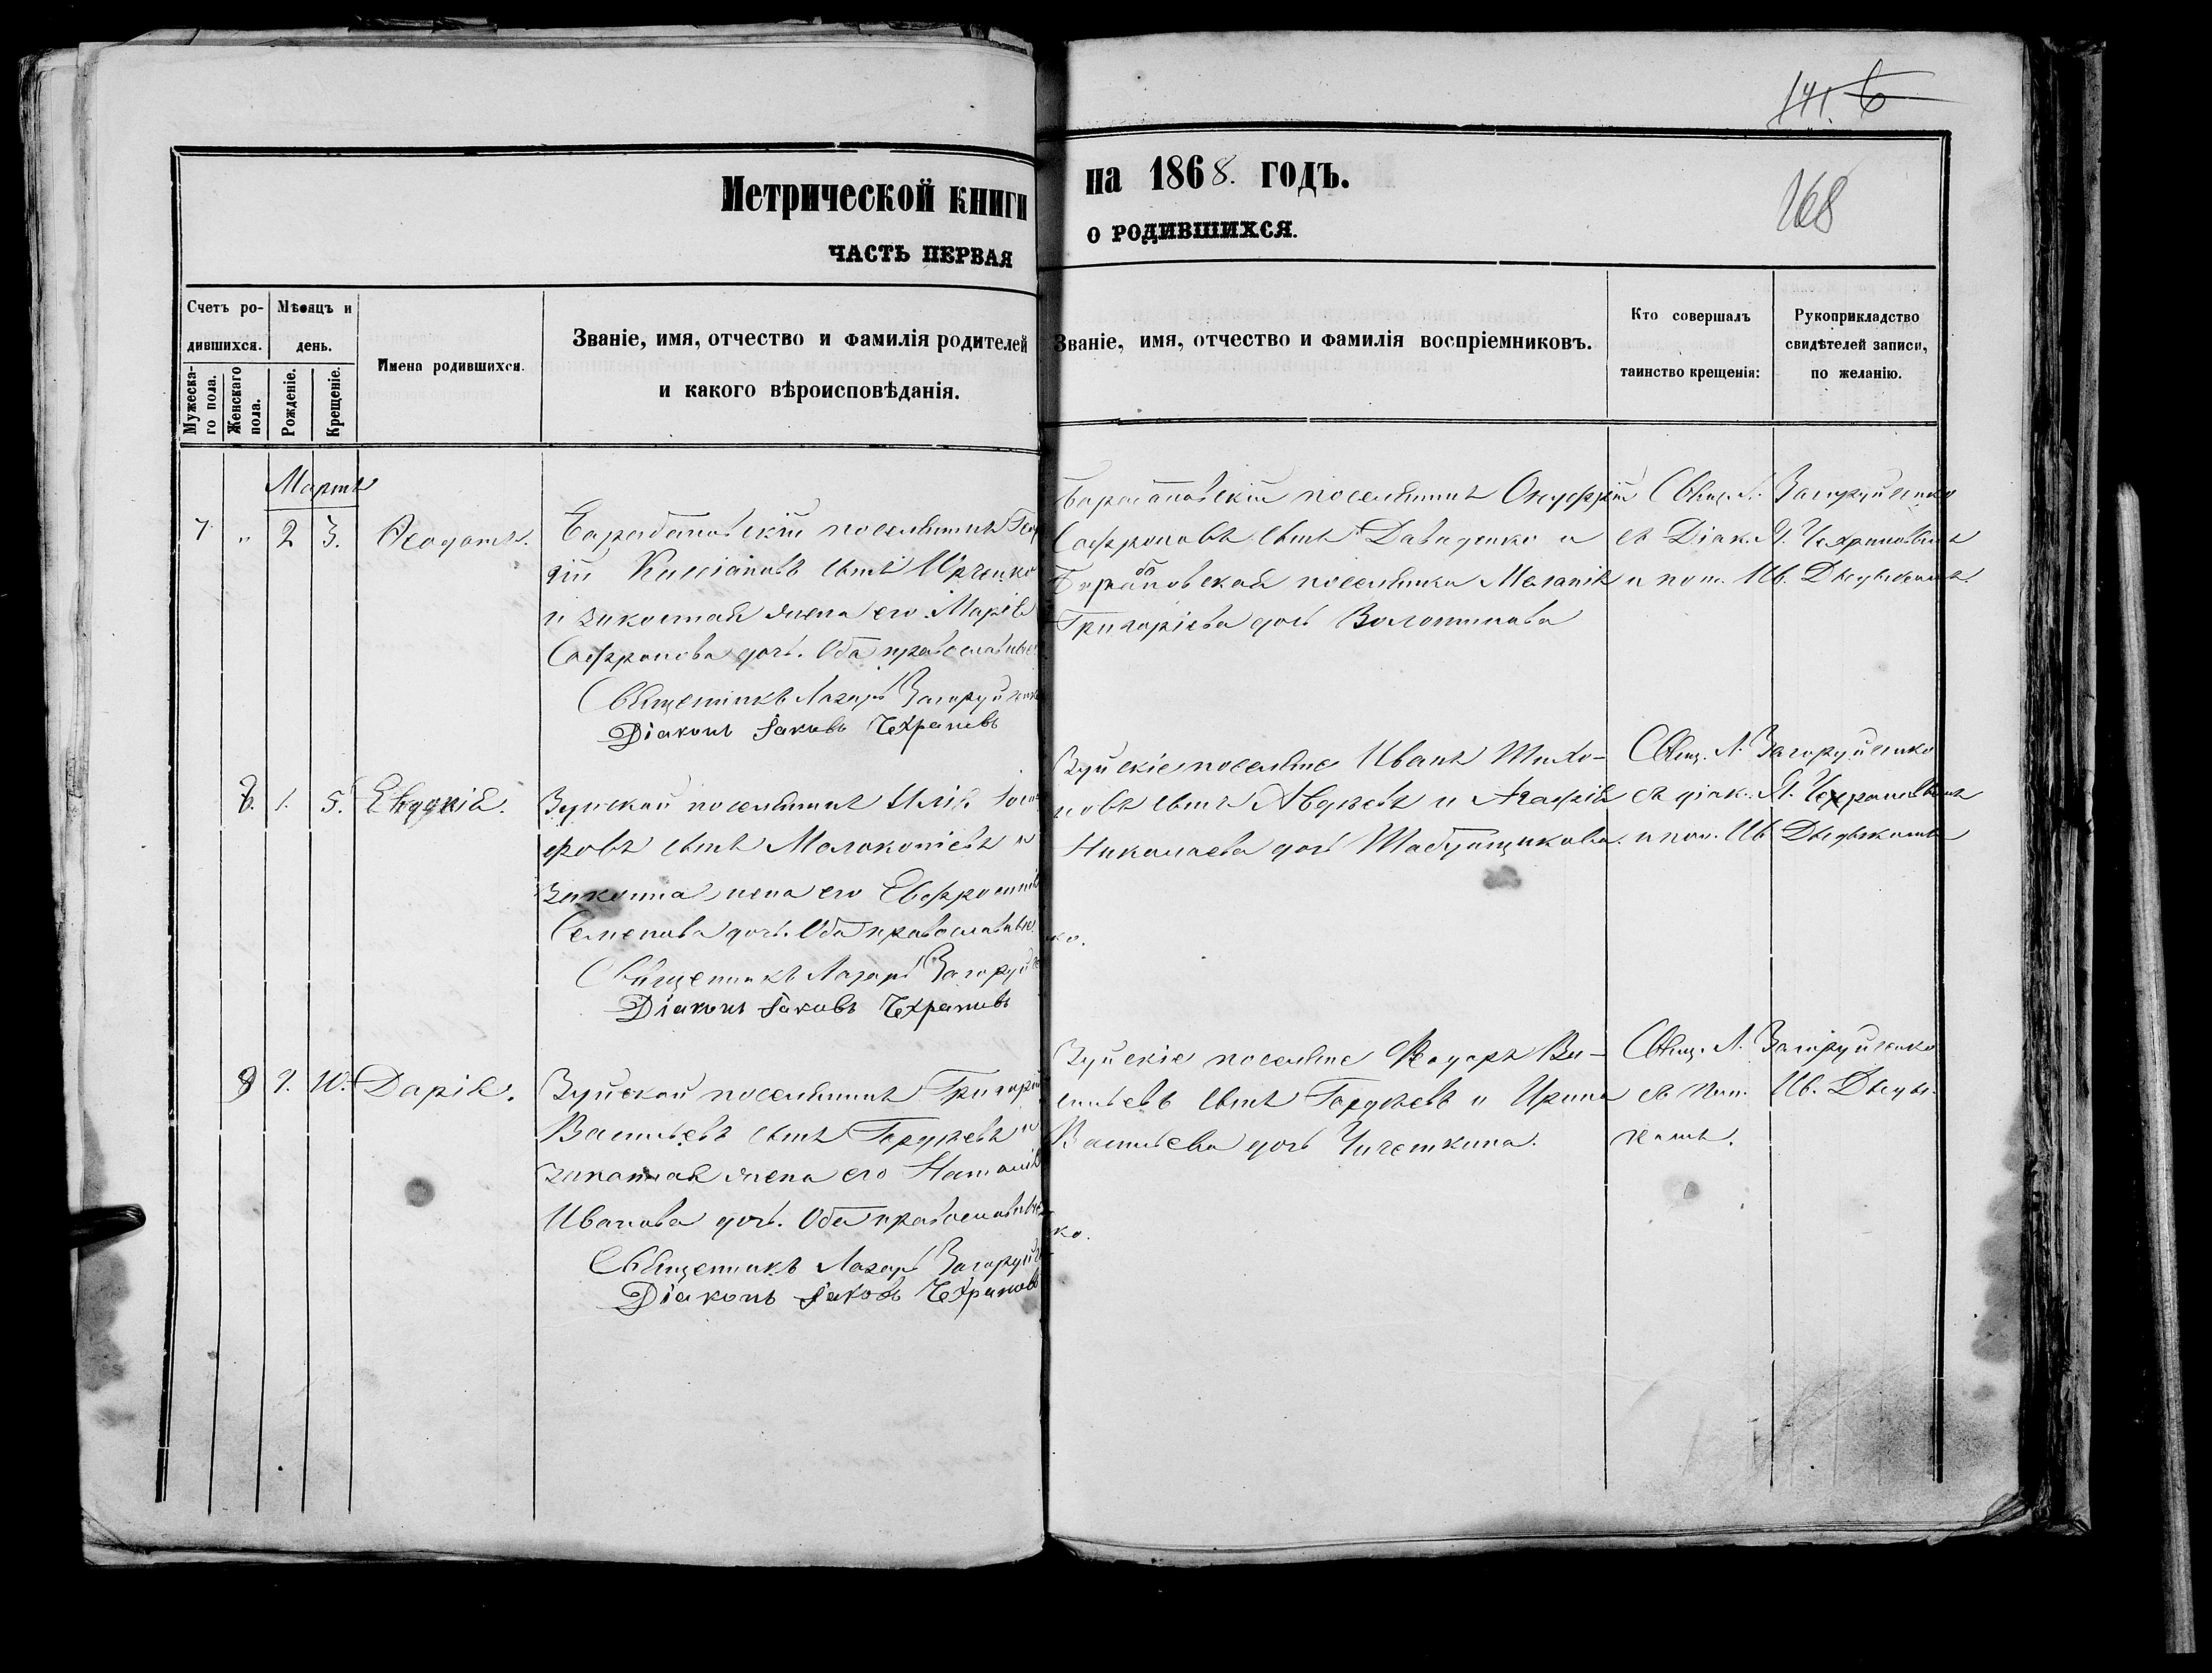 141. 6
Метрической книги на 1868. годъ.
168
ЧАСТЬ ПЕРВАЯ О РОДИВШИХСЯ.
Счетъ ро-
дившихся.
Мужеска-
го пола.
Женскаго
пола.
Мѣсяцъ и
день.
Рожденіе.
Крещеніе.
Имена родившихся.
Званіе, имя, отчество и фамилія родителей
и какого вѣроисповѣданія.
Званіе, имя, отчество и фамилія воспріемниковъ.
Кто совершалъ
таинство крещенія:
Рукоприкладство
свидѣтелей записи,
по желанію.
Мартъ
7 " 2 3. Ѳеодотъ.
поселянинъ
Кассіановъ сынъ Юрченко
и законная жена его Марія
Софронова дочь. Оба православные
Священникъ Лазарь Загоруйченко
Діаконъ Іаковъ Чехрановъ
поселянинъ Онуфрій
Софроновъ сынъ Давиденко и
поселянка Меланія
Григоріева дочь Волошинова
Свящ. Л. Загоруйченко
съ Діак. Я. Чехрановымъ
и пон. Ив.
1. 5. Евдокія.
Зуйской поселянинъ Илія
сынъ и
законная жена его Евфросинія
Семенова дочь. Оба православные.
Священникъ Лазарь Загоруйченко.
Діаконъ Іаковъ Чехрановъ
Зуйскіе поселяне Иванъ Тихо-
новъ сынъ Авдѣевъ и Агафія
Николаева дочь
Свящ. Л. Загоруйченко
съ діак. Я. Чехрановымъ
и пон. Ив.
8 9. 10. Дарія.
Зуйской поселянинъ Григорій
Васильевъ сынъ Гордѣевъ и
законная жена его Наталія
Иванова дочь. Оба православные
Священникъ Лазарь Загоруйченко.
Діаконъ Іаковъ Чехрановъ
Зуйскіе поселяне Ѳеодоръ Ва-
сильевъ сынъ Гордѣевъ и Ирина
Васильева дочь Чичеткина.
Свящ. Л. Загоруйченко
съ пон. Ив.